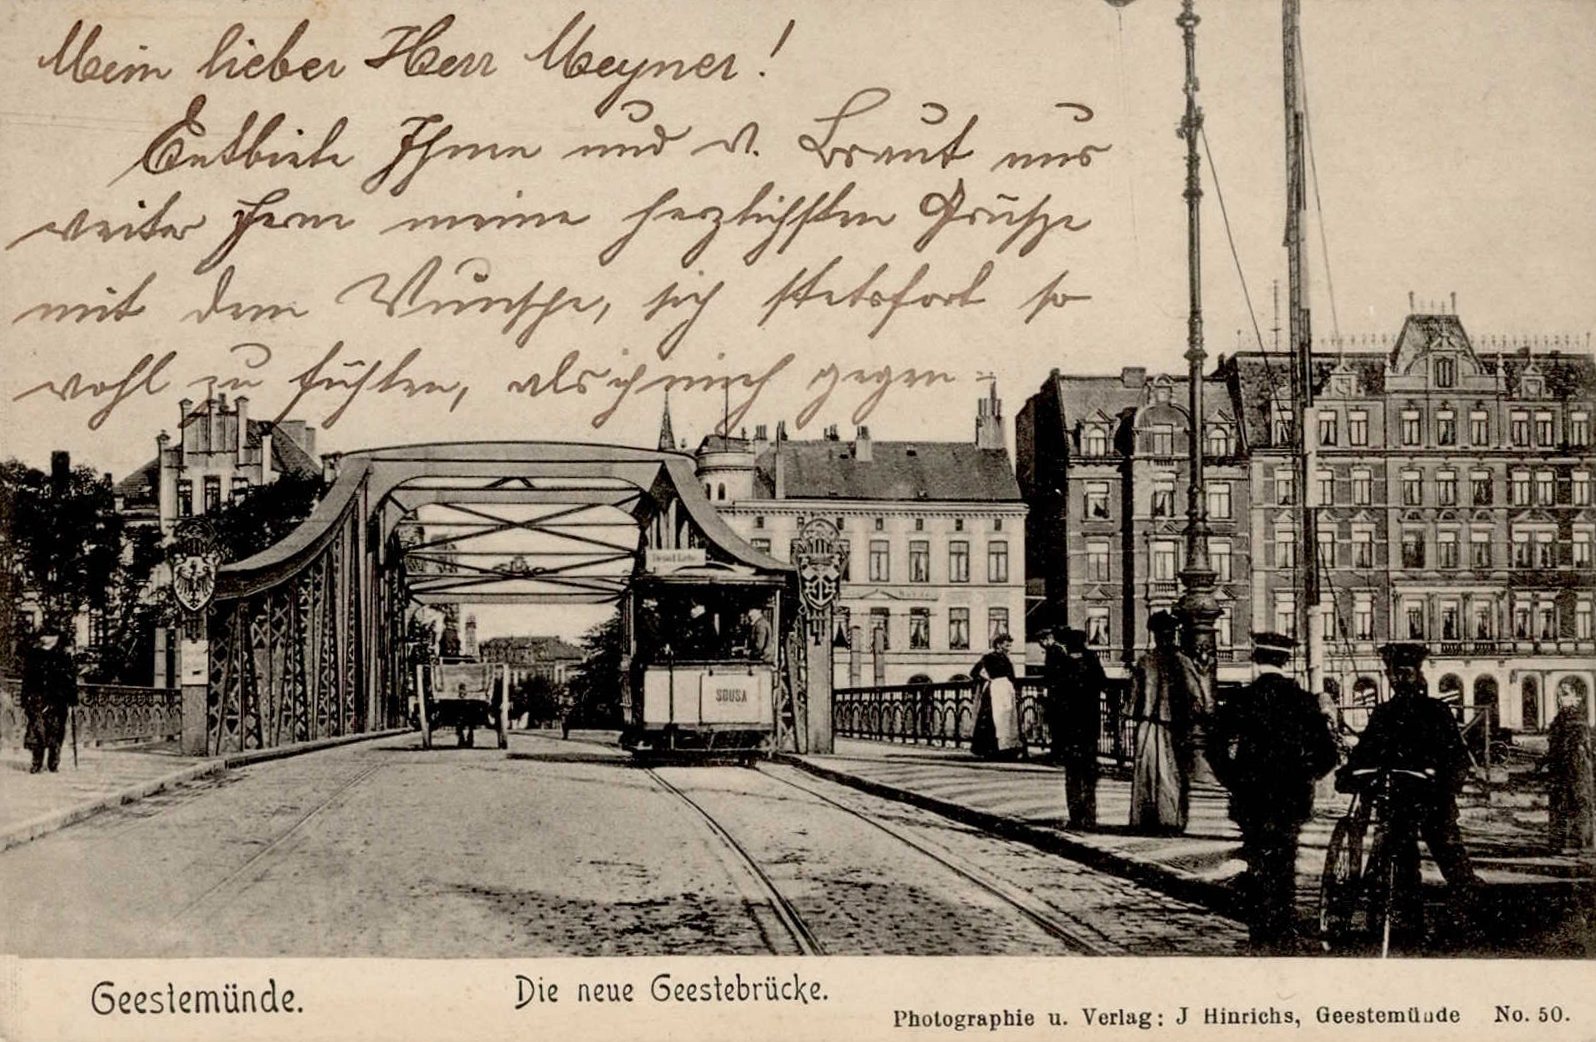 Mein lieber Herr Meyner!
Entbiete Ihnen und v. Braut aus
weiter Ferne meine herzlichsten Grüsze
mit dem Wunsche, sich stetsfort so
wohl zu fühlen, als ich mich gegen=
SOUSA
Geestemünde.
Die neue Geestebrücke.
Photographie u. Verlag: J Hinrichs, Geestemünde No. 50.